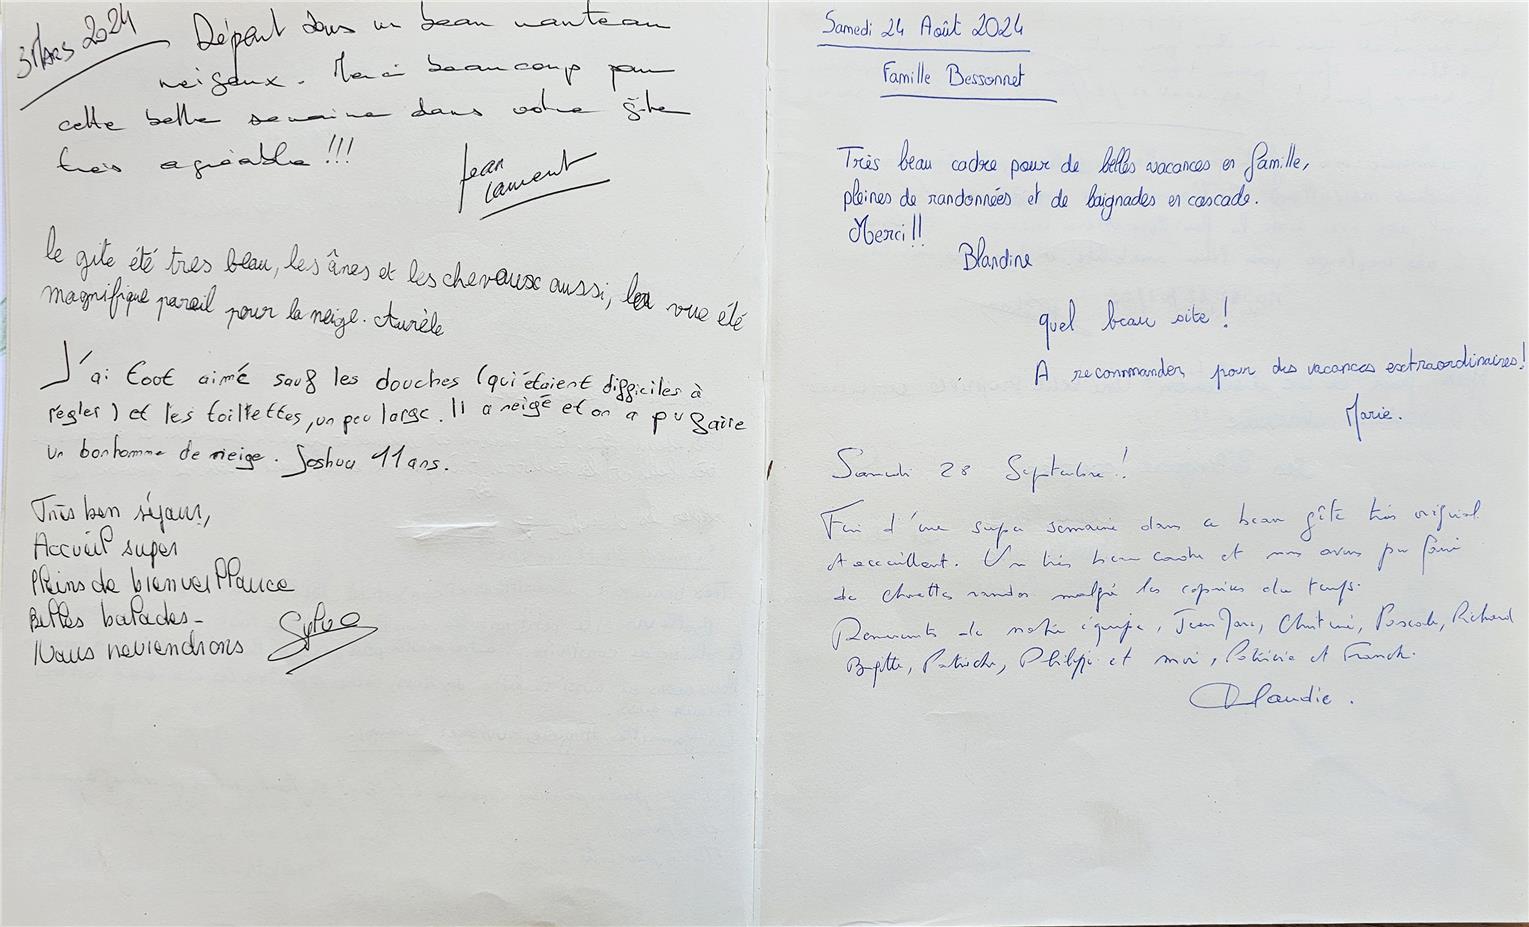 3 Mars 2024
Départ dans un beau manteau
neigeux. Merci beaucoup pour
cette belle semaine dans votre gîte
très agréable !!!
Jean
Laurent
le gite été tres beau, les ânes et les chevaux aussi, la vue été
magnifique pareil pour la neige. Aurèle
J'ai toot aimé sauf les douches (qui étaient difficiles à
régler) et les toilettes, un peu large. Il a neigé et on a pu faire
un bonhomme de neige. Joshua 11 ans.
Très bon séjour,
Accueil super
Pleins de bienveillance
Belles balades -
Nous reviendrons
Sylvie
Samedi 24 Août 2024
Famille Bessonnet
Très beau cadre pour de belles vacances en famille,
pleines de randonnées et de baignades en cascade.
Merci !!
Blandine
Quel beau site !
A recommander pour des vacances extraordinaires !
Marie.
Samedi 28 Septembre !
Fin d'une super semaine dans ce beau gîte très original
et accueillant. Un très beau cadre et nous avons pu faire
de chouettes randos malgré les caprices du temps.
de notre équipe, Jean Marc, Christine, Pascale, Richard
Brigitte, Patricia, Philippe et moi, Patricia et Franck.
Claudie.